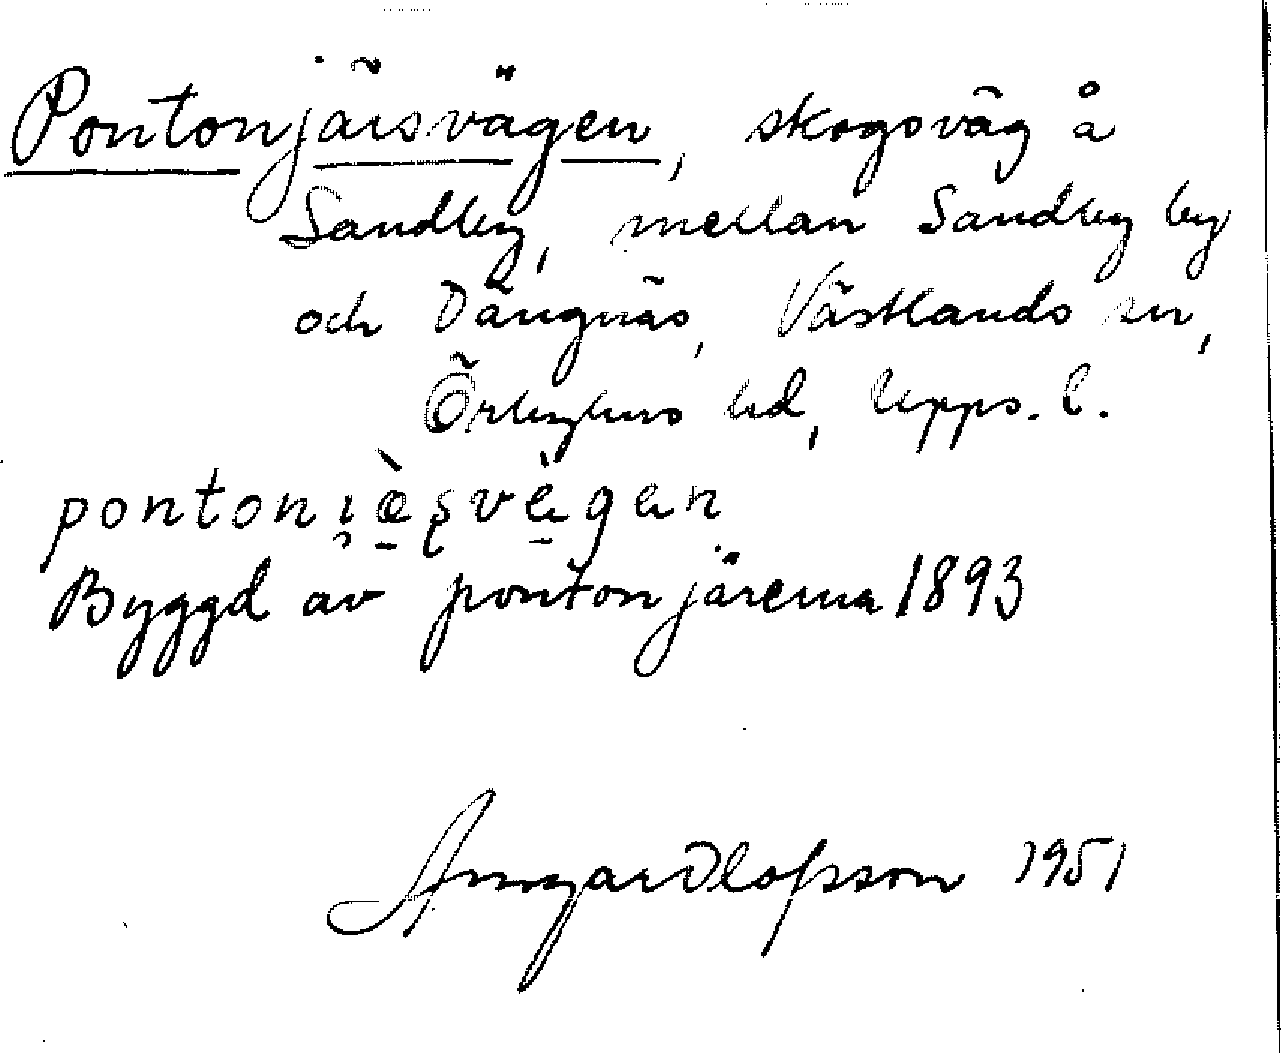 Pontonjärsvägen, skogsväg å
Sandby, mellan Sandby by
och Dängnäs, Västlands sn,
Örbyhus hd, Upps. l.
pontoni̯æ̀ṣvæ̀gen
Byggd av pontonjärerna 1893
Olofsson 1951